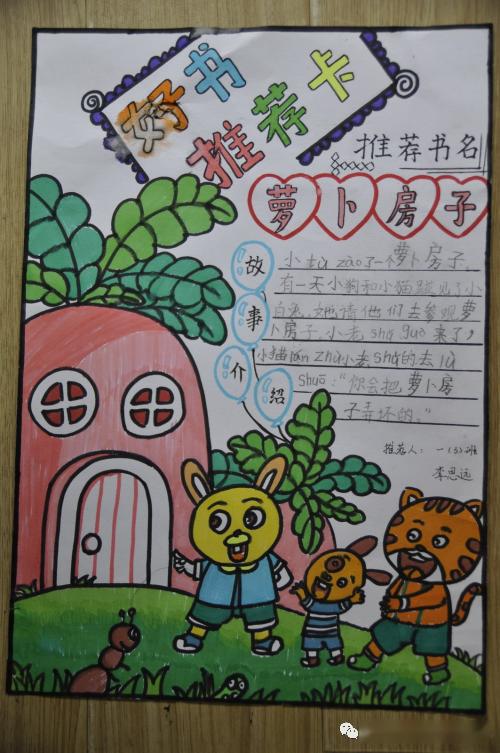 好书
推荐卡
推荐书名
萝卜房子
故事介绍
小松zào了一个萝卜房子，
有一天小狗和小猫碰见了小
白兔，她请他们去参观萝
卜房子，小老shǔ guò 来了，
小猫lán zhù小老shǔ的去lù
shuō："你会把萝卜房
子弄坏的。"
推荐人：一(5)班
李思远